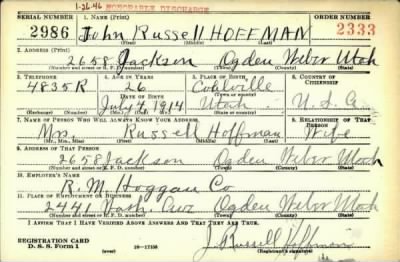 1-26-46 HONORABLE DISCHARGE
SERIAL NUMBER 1. NAME (Print) ORDER NUMBER
2986 John Russell HOFFMAN 2333
(First) (Middle) (Last)
2. ADDRESS (Print)
2658 Jackson Ogden Weber Utah
(Number and street or R. F. D. number) (Town) (County) (State)
3. TELEPHONE 4. AGE IN YEARS 5. PLACE OF BIRTH 6. COUNTRY OF CITIZENSHIP
4835R 26 Coalville
DATE OF BIRTH (Town or county)
July 4, 1914 Utah U. S. A.
(Exchange) (Number) (Mo.) (Day) (Yr.) (State or country)
7. NAME OF PERSON WHO WILL ALWAYS KNOW YOUR ADDRESS 8. RELATIONSHIP OF THAT PERSON
Mrs. Russell Hoffman Wife
(Mr., Mrs., Miss) (First) (Middle) (Last)
9. ADDRESS OF THAT PERSON
2658 Jackson Ogden Weber Utah
(Number and street or R. F. D. number) (Town) (County) (State)
10. EMPLOYER'S NAME
R. M. Hoggan Co
11. PLACE OF EMPLOYMENT OR BUSINESS
2441 Wash. Ave Ogden Weber Utah
(Number and street or R. F. D. number) (Town) (County) (State)
I AFFIRM THAT I HAVE VERIFIED ABOVE ANSWERS AND THAT THEY ARE TRUE.
REGISTRATION CARD
D. S. S. Form 1 16-17105 J. Russell Hoffman
(Registrant's signature)